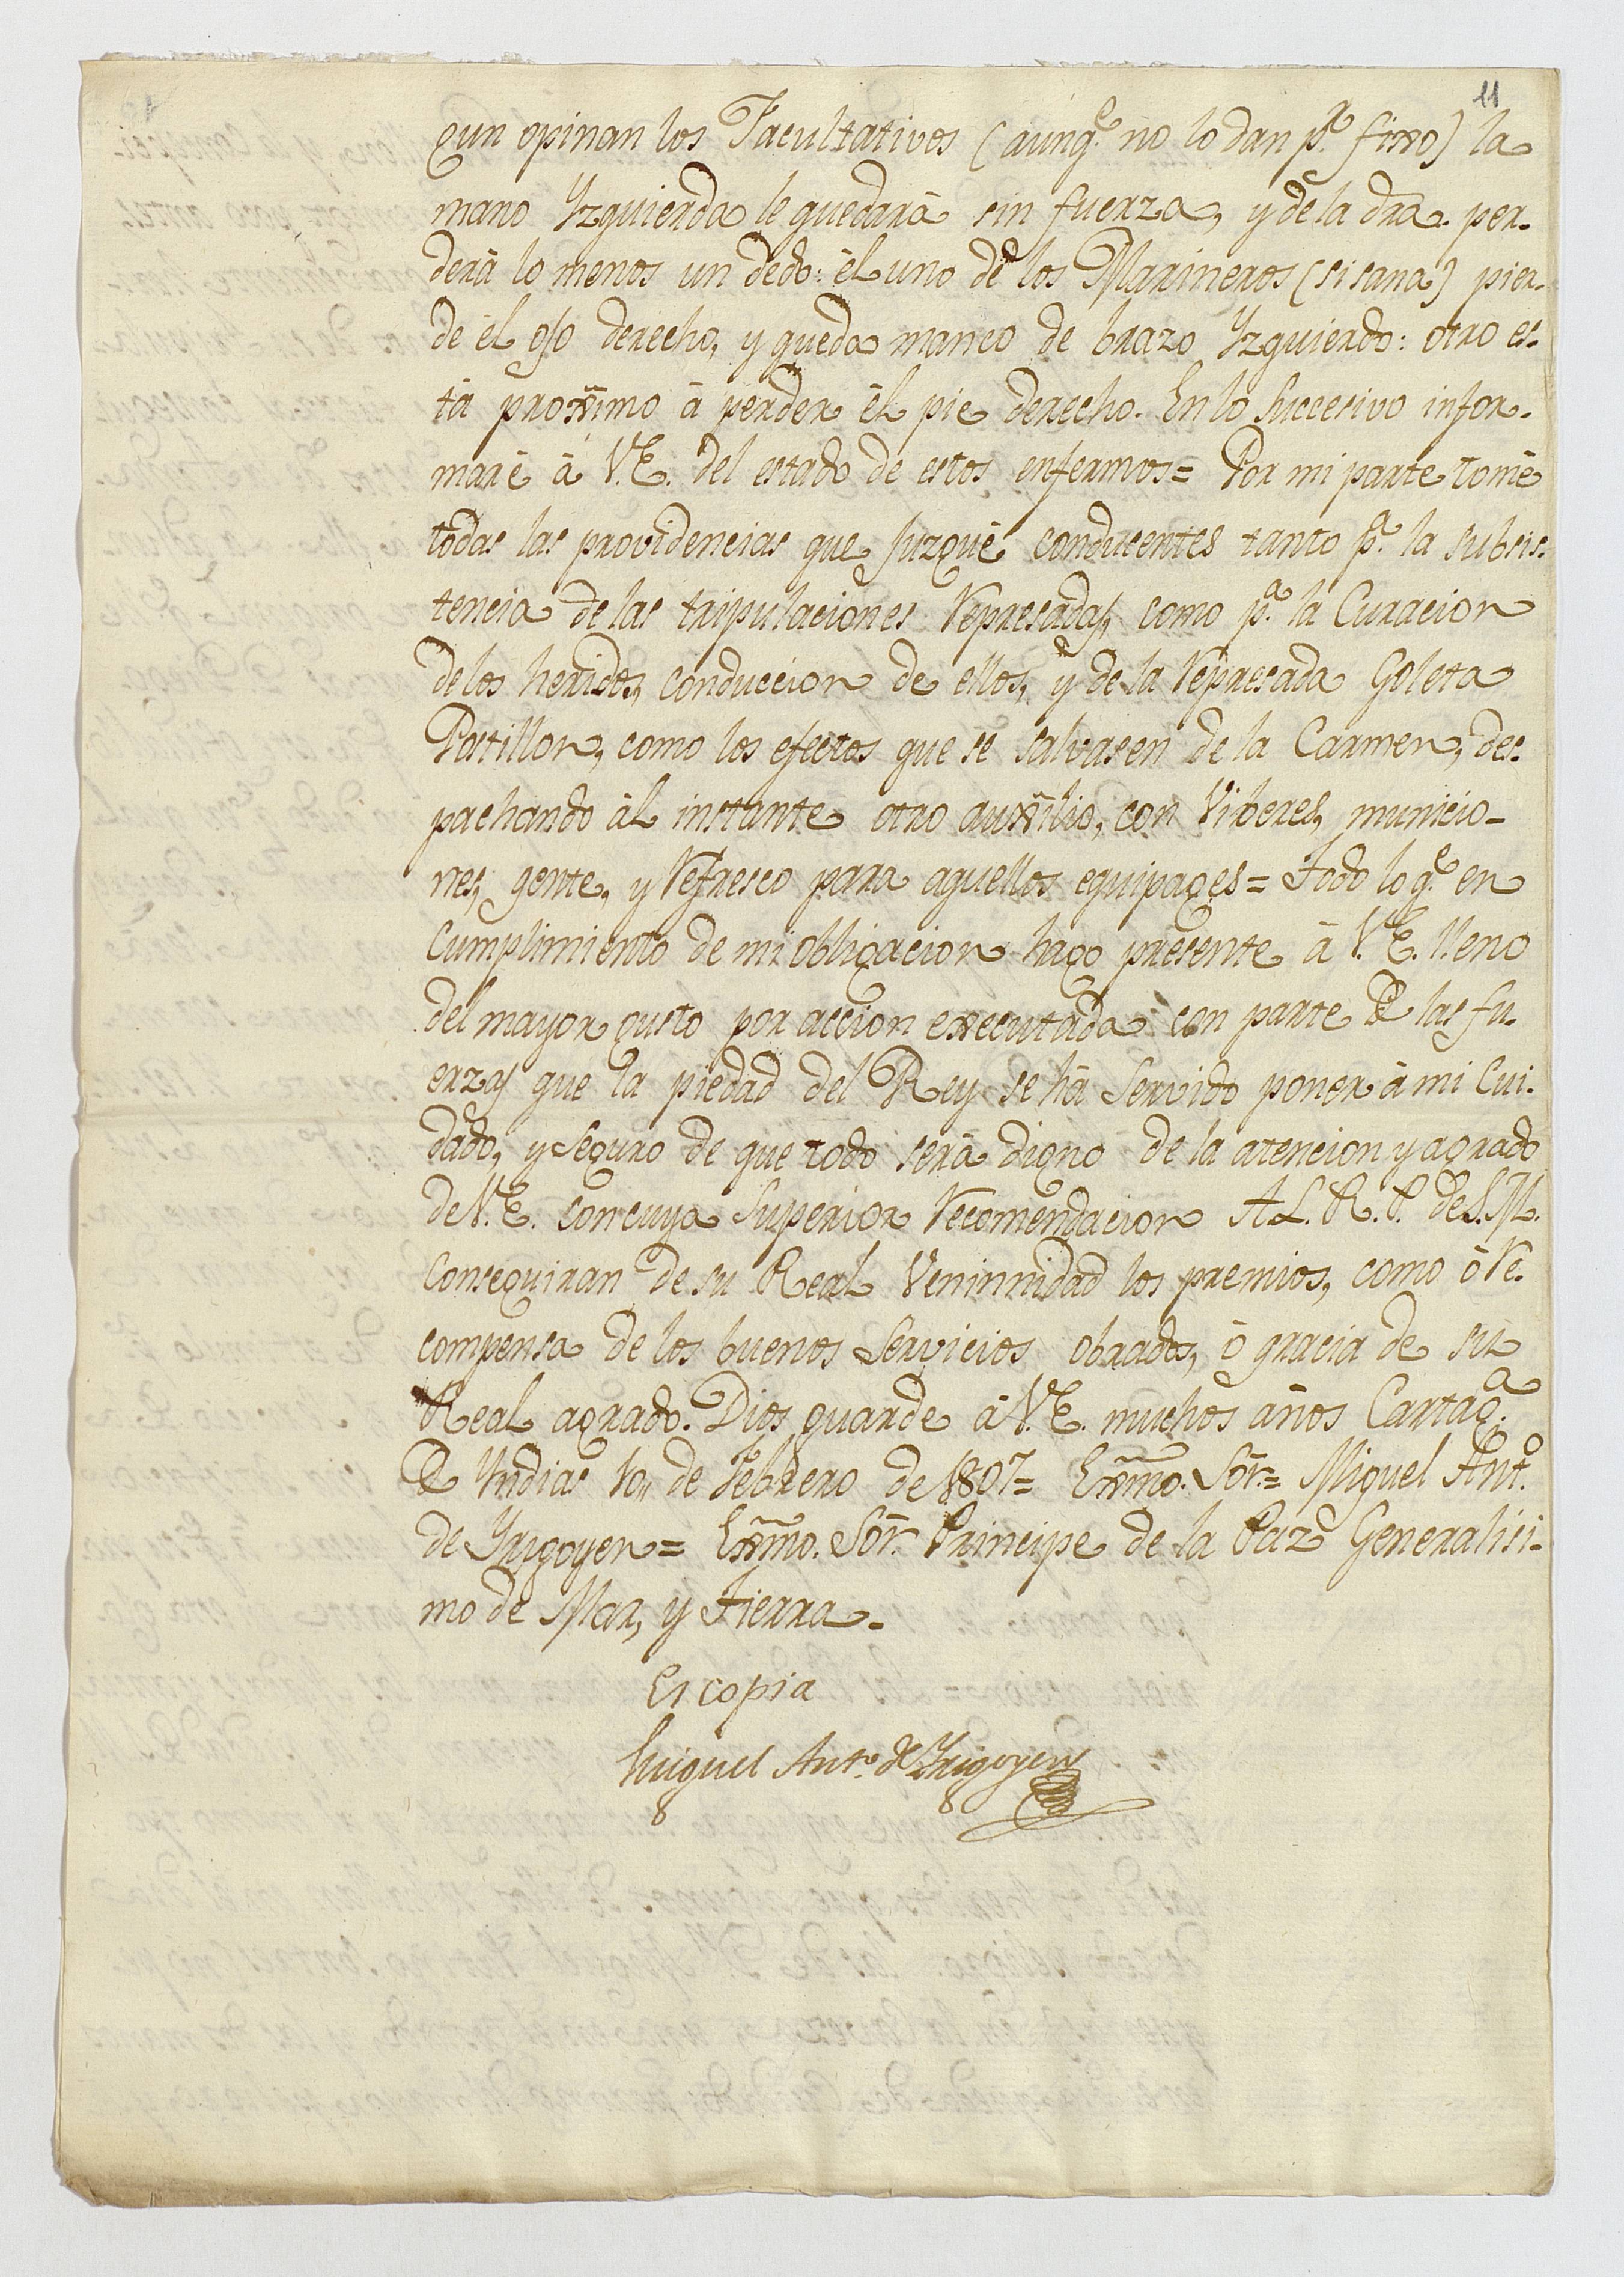 11
gun opinan los Facultativos (aunq.e no lo dan p.r fixo) la
mano Yzquierda le quedarà sin fuerza, y de la dra. per-
derà lo menos un dedo: èl uno de los Marineros (si sana) pier-
de èl ojo derecho, y queda manco de brazo Yzquierdo: otro es-
tà proximo à perder èl pie derecho. En lo Succesivo infor-
marè à V.E. del estado de estos enfermos= Por mi parte tomè
todas las providencias que juzguè conducentes tanto p.a la subsis-
tencia de las tripulaciones Represadas, como p.a la Curacion
de los heridos, conduccion de ellos, y de la Represada Goleta
Postillon, como los efectos que se salvasen de la Carmen, des-
pachando àl instante otro auxilio, con Viberes, municio-
nes, gente, y Refresco para aquellos equipages= Todo lo q.e en
Cumplimiento de mi obligacion hago presente à V.E. lleno
del mayor gusto por accion executada con parte de las fu-
erzas que la piedad del Rey se hà Servido poner à mi Cui-
dado, y Seguro de que todo serà digno de la atencion y agrado
de V.E. con cuya Superior Recomendacion A L. R. P. de S.M.
Conseguiran de su Real Veninnidad los premios, como ò Re-
compensa de los buenos Servicios obrados, ò gracia de su
Real agrado. Dios guarde à V.E. muchos años Cartag.a
de Yndias 10,, de Febrero de 1807= Exmo. Sor.= Miguel Ant.o
de Yrigoyen= Exmo. Sor. Principe de la Paz Generalisi-
mo de Mar, y Tierra.
Es copia
Miguel Ant.o de Yrigoyen